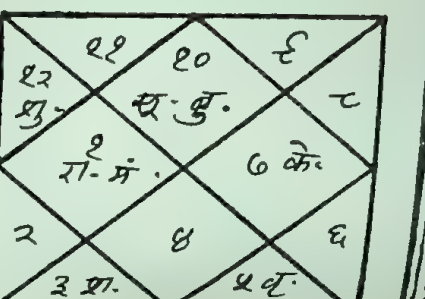 ११
१०
९
१२
शु.
सू. बु.
८
१
रा. मं.
७ के.
२
४
६
३ श.
५ वृ.